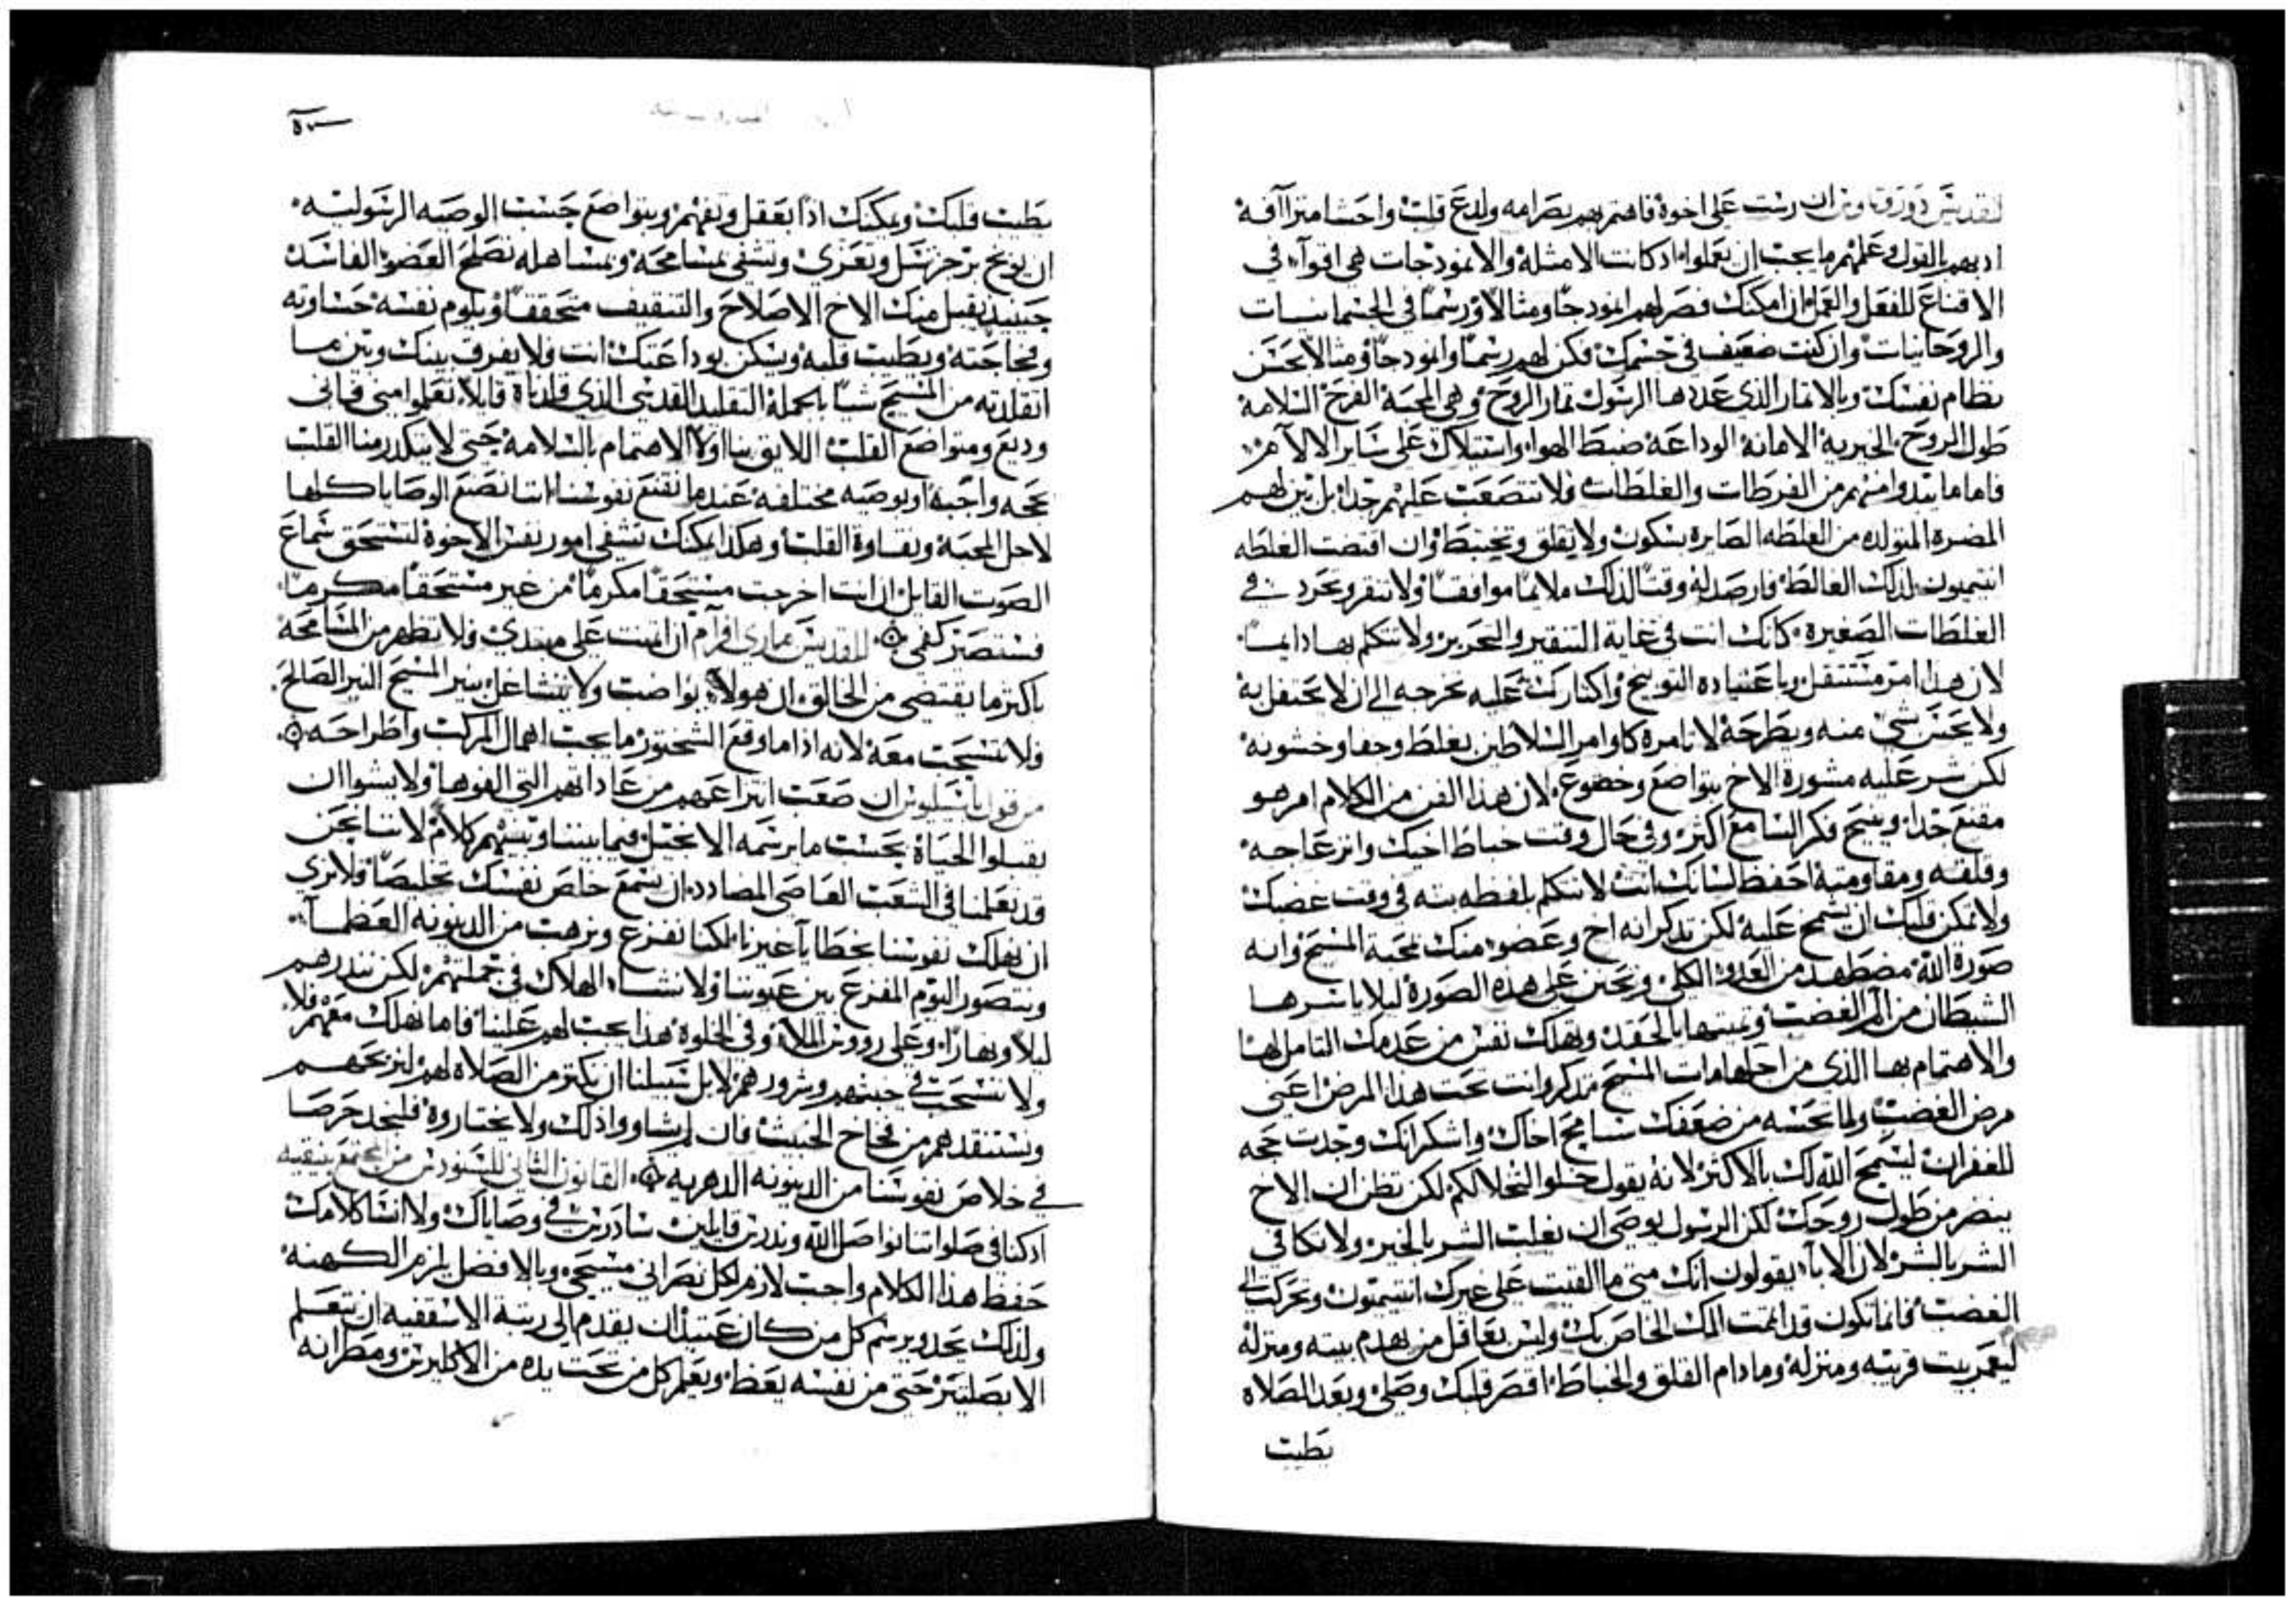 للقديس دوروتاوس ان ريست على اخوة فاهتم بهم بصرامه ولدع قلب واحشا متراآفة
ادبهم بالقول وعلمهم ما يجب ان يعملوا اد كانت الامثلة والانمودجات هي اقوآ في
الاقناع للفعل والعمل ان امكنك فصر لهم انمودجا ومثالا ورسما في الجسمانيات
والروحانيات وان كنت ضعيف في جسمك فكن لهم رسما وانمودجا ومثالا بحسن
نظام نفسك وبالاثمار الذي عددها الرسول ثمار الروح وهي المحبة الفرح السلامة
طول الروح الخيرية الامانة الوداعة ضبط الهوا واستيلاك على ساير الالآم
فاما ما يبدوا منهم من الفرطات والغلطات فلا تتصعب عليهم جدا بل بين لهم
المضرة المتولده من الغلطه الصايرة بسكون ولا يقلق وتختبط وان اقتضت الغلطه
انتيميون لذلك الغالط فارصد له وقتا لذلك ملايما موافقا ولا تنقر وتحرد في
الغلطات الصغيرة كانك انت في غاية التنقير والتحرير ولا تتكلم بها دايما
لان هذا امر مستثقل وباعتياده التوبيخ واكثارك عليه تخرجه الى ان لا يحتفل به
ولا يحس شي منه ويطرحه لا تامره كاوامر السلاطين بغلط وجفا وخشونه
لكن شر عليه مشورة الاخ بتواضع وخضوع لان هذا الفن من الكلام امر هو
مقنع جدا وينيح فكر السامع اكثر وفي حال وقت خباط اخيك وانزعاجه
وقلقه ومقاومته احفظ لسانك انت لا تتكلم بلفظه بته في وقت غضبك
ولا تمكن قلبك ان يشمخ عليه لكن تدكر انه اخ وعضو منك لمحبة المسيح وانه
صورة الله مضطهد من العدو الكلي وتحنن على هذه الصورة ليلا ياسرها
الشيطان من الم الغضب ويميتها بالحقد وتهلك نفس من عدمك التامل لها
والاهتمام بها الذي من اجلها مات المسيح متدكر وانت تحت هذا المرض اعني
مرض الغضب ولما تحسه من ضعفك سامح اخاك واشكر انك وجدت حجه
للغفران ليسمح الله لك بالاكثر لانه يقول حلوا لتحلا لكم لكن تظن ان الاخ
ينضر من طول روحك لكن الرسول يوصي ان نغلب الشر بالخير ولا نكافي
الشر بالشر لان الابآ يقولون انك متى ما القيت على غيرك انتيميون وتحركت الى
الغضب فانما تكون قد اتممت الملك الخاص بك وليس بعاقل من يهدم بيته ومنزله
ليعمر بيت قريبه ومنزله وما دام القلق والخباط اقصر قلبك وصلي وبعد الصلاه
بطيب
بطيب قلبك ويمكنك اذا بعقل وتفهم وبتواضع حسب الوصيه الرسوليه
ان توبخ تزجر تسل وتعزي وتشفي بمسامحه وبمساهله تصلح العضو الفاسد
حينيد يقبل منك الاخ الاصلاح والتثقيف متحققا ويلوم نفسه جساوته
وفجاجته ويطيب قلبه ويسكن بوداعتك انت ولا يفرق بينك وبين ما
اتقلدته من المسيح شيا بجملة التقليد القدسي الذي قلدناة قايلا تعلموا مني فاني
وديع ومتواضع القلب اللايق بنا اولا الاهتمام بالسلامة حتى لا يتكدر منا القلب
بحجه واجبة او بوصيه مختلفة عندما نقنع نفوسنا اننا نصنع الوصايا كلها
لاجل المحبة ونقاوة القلب وهكذا يمكنك تشفي امور نفس الاخوة لتستحق سماع
الصوت القايل ان انت اخرجت مستحقا مكرما من غير مستحقا مكرما
فستصير كفمي للقديس ماري افرآم ان اتمنت على مبتدي ولا تظهر من المسامحة
باكثر ما يقتضي من الخالق ان هولآ يواضب ولا يتشاغل بنير المسيح النير الصالح
ولا تنسحب معه لانه اذا ما وقع الشختور ما يجب اهمال المركب واطراحه
من قول باسيليوس ان صعب انتزاعهم من عاداتهم التي الفوها ولا يشوا ان
يقبلوا الحياة بحسب ما يرسمه الانجيل فيما بيننا وبينهم كلام لاننا نحن
قد تعلمنا في الشعب العاصي المضادد ان نسمع خلص نفسك تخليصا ولا نرى
ان نهلك نفوسنا بخطايآ غيرنا لكنا نفزع ونرهب من الدينونه العظمآ
ونتصور اليوم المفزع بين عيوننا ولا نشا الهلاك في جملتهم لكن نندرهم
ليلا ونهارا وعلى رووس الملآ وفي الخلوة هذا يجب لهم علينا فاما نهلك معهم فلا
ولا ننسحب في خبثهم وشرورهم لا بل سبيلنا ان نكثر من الصلاة لهم لنربحهم
ونستنقدهم من فخاخ الخبيث فان لم يشاووا ذلك ولا يختاروة فليجد حرصا
في خلاص نفوسنا من الدينونه الدهرية القانون الثاني للسنودس من المجتمع بنيقيه
ادكنا في صلواتنا نواصل الله وندرس قايلين ساندرس في وصاياك ولا انسا كلامك
حفظ هذا الكلام واجب لازم لكل نصراني مسيحي وبالافضل يلزم الكهنة
ولذلك نحد ونرسم كل من كان عتيد ان يقدم الى رتبة الاسقفيه ان يتعلم
الابصلتير حتى من نفسه يعظ ويعلم كل من تحت يده من الاكليرس ومطرانه